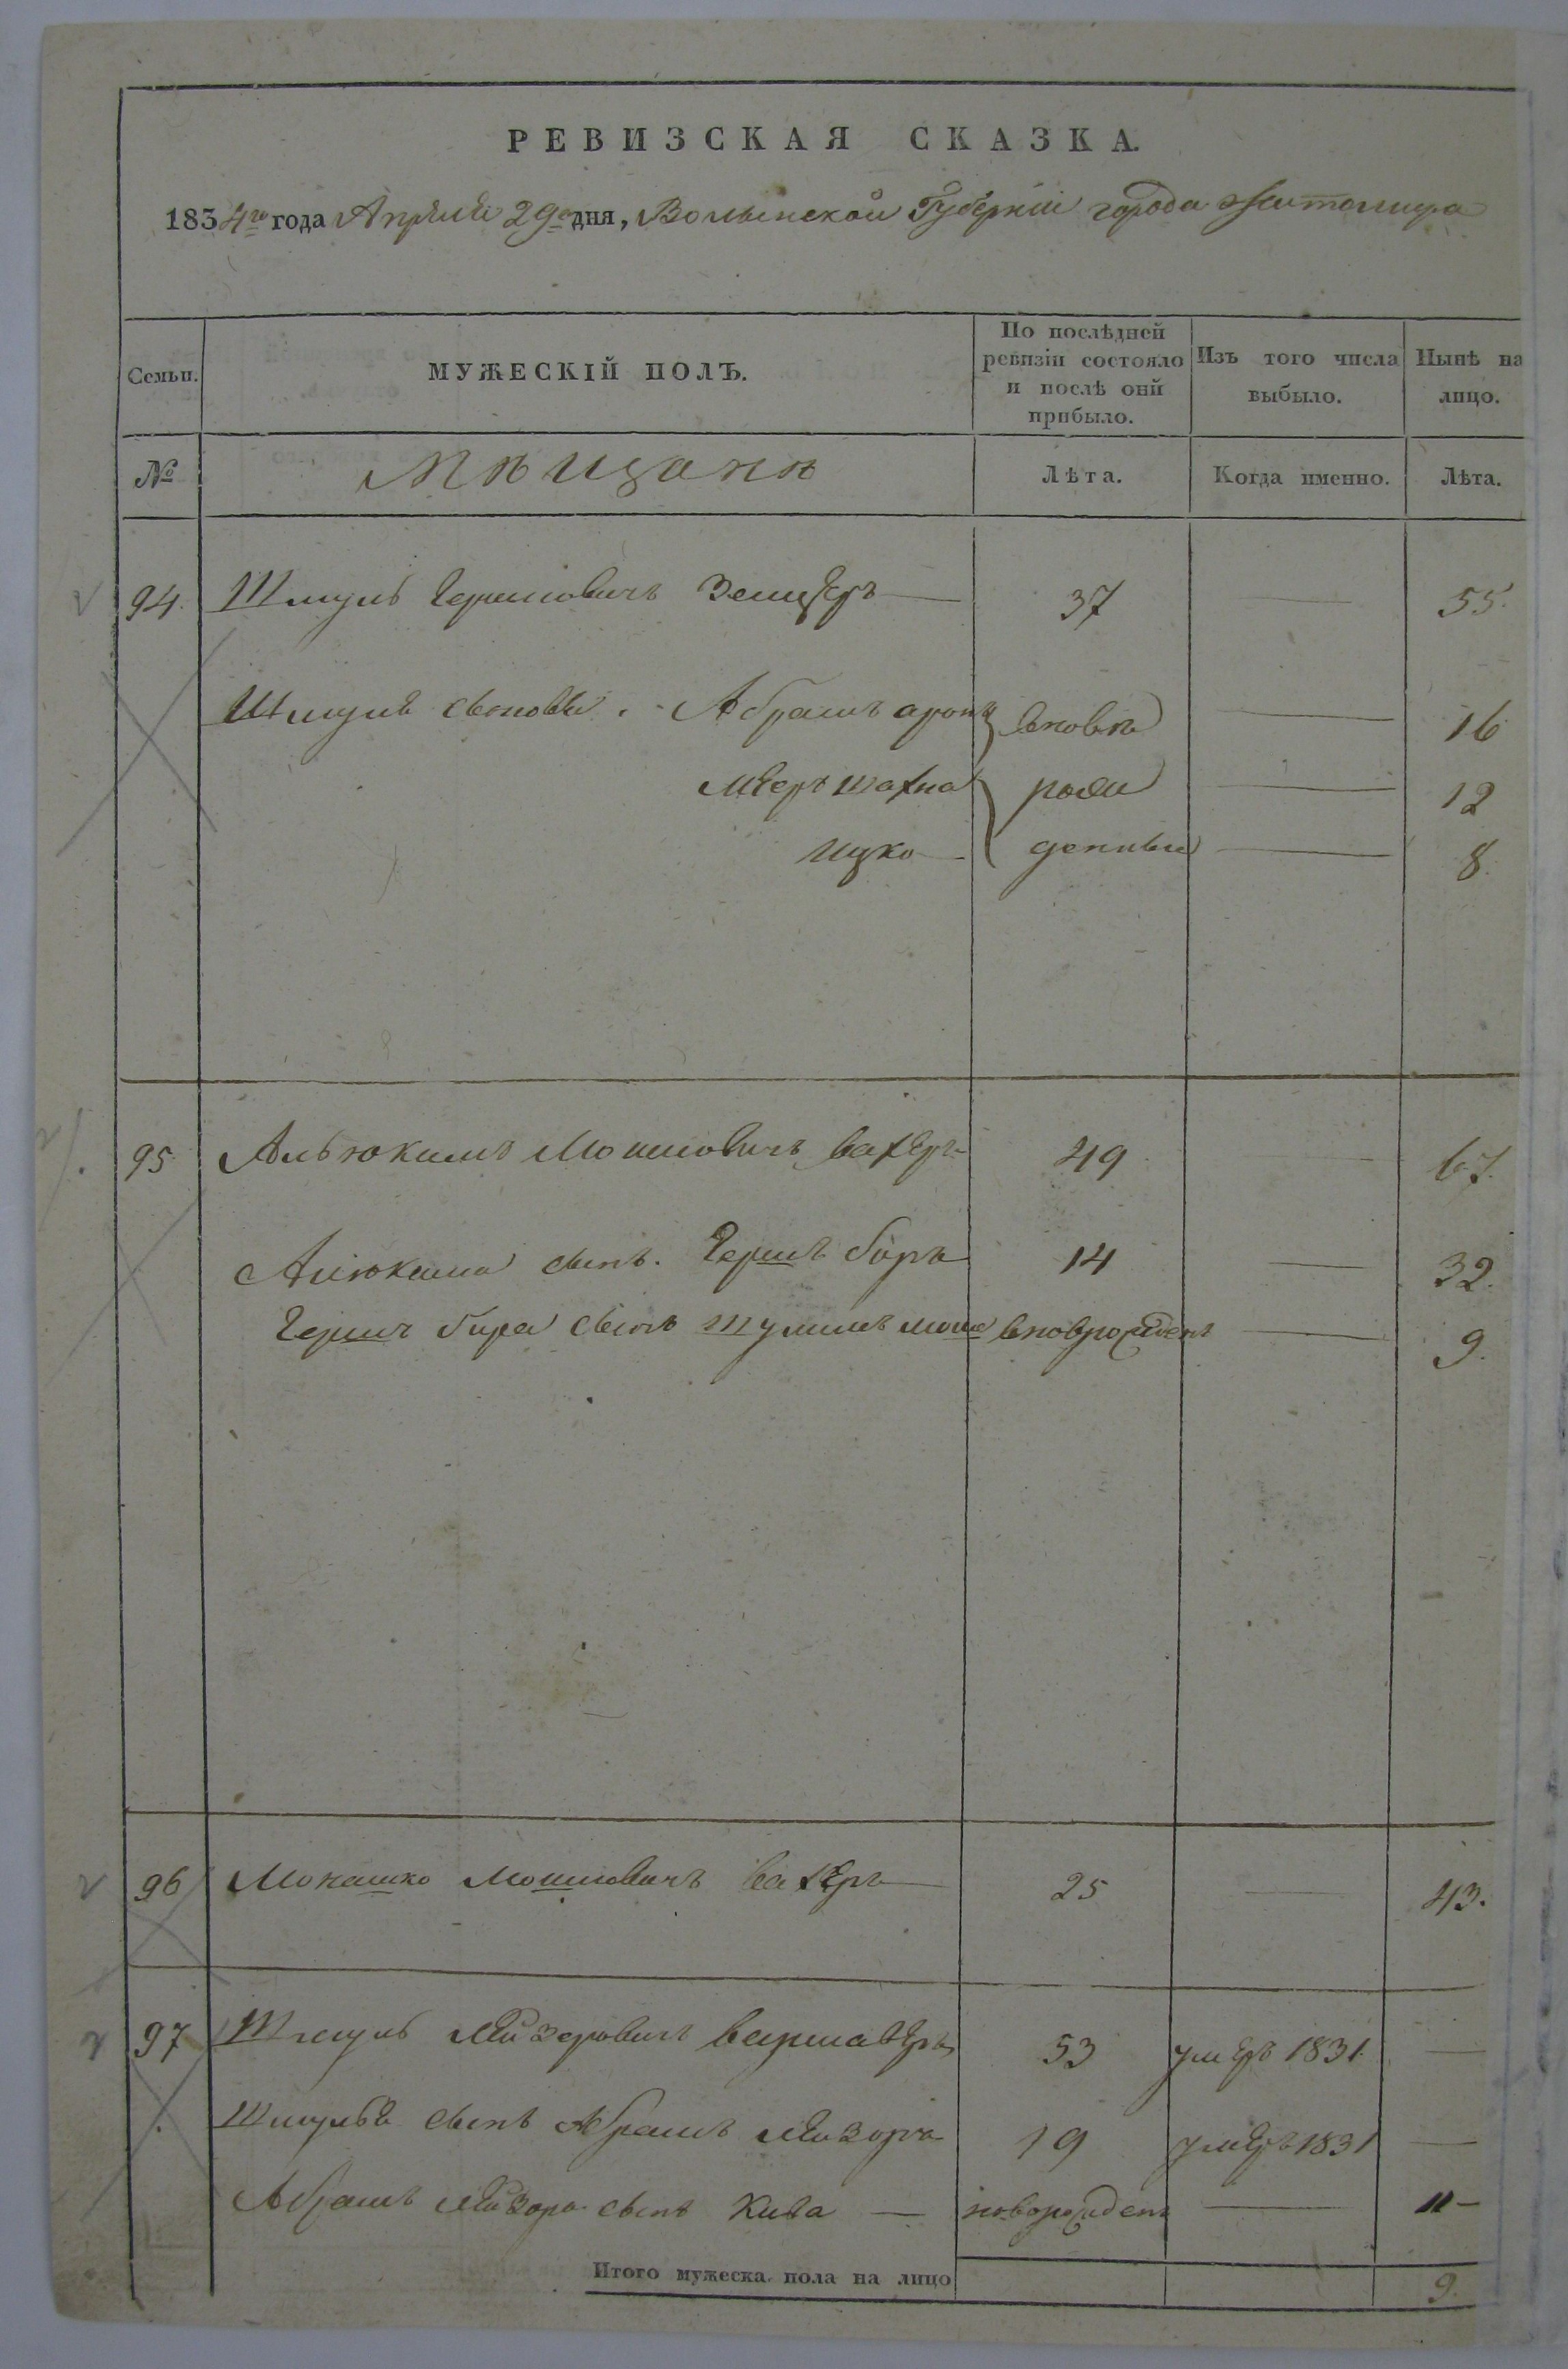 РЕВИЗСКАЯ СКАЗКА.
1834го года Апреля 29го дня, Волынской Губерніи города Житомира
Семьи. МУЖЕСКІЙ ПОЛЪ. По послѣдней ревизіи состояло и послѣ оній прибыло. Изъ того числа выбыло. Нынѣ на лицо.
№ Мѣщанѣ Лѣта. Когда именно. Лѣта.
94. Шмуль Гершовичъ Земцеръ — 37 — 55.
Шмуля сыновья. Абрамъ аронъ вновь — 16
Мееръ шахна рож — 12
Ицко — денные — 8.
95 Альюкимъ Мошковичъ вахеръ 49 — 67.
Алюкима сынъ. Гершъ беръ 14 — 32.
Гершъ бера сынъ шулимъ мошко вноврожденъ — 9.
96 Монашко Мошковичъ вахеръ — 25 — 43.
97 Шмуль Лейзеровичъ варшаверъ 53 умеръ 1831. —
Шмуля сынъ Абрамъ Лейзоръ 19 умеръ 1831 —
Абрамъ Лейзора сынъ Кива — новорожденъ — 11 —
Итого мужеска пола на лицо 9.